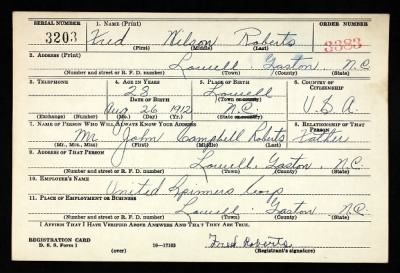 SERIAL NUMBER 1. NAME (Print) ORDER NUMBER
3203 Fred Wilson Roberts 3383
(First) (Middle) (Last)
2. ADDRESS (Print)
Lowell Gaston, N.C.
(Number and street or R. F. D. number) (Town) (County) (State)
3. TELEPHONE 4. AGE IN YEARS 5. PLACE OF BIRTH 6. COUNTRY OF CITIZENSHIP
28 Lowell
DATE OF BIRTH (Town or county)
Aug 26 1912 N.C. U.S.A.
(Exchange) (Number) (Mo.) (Day) (Yr.) (State or country)
7. NAME OF PERSON WHO WILL ALWAYS KNOW YOUR ADDRESS 8. RELATIONSHIP OF THAT PERSON
Mr John Campbell Roberts Father
(Mr., Mrs., Miss) (First) (Middle) (Last)
9. ADDRESS OF THAT PERSON
Lowell, Gaston, N.C.
(Number and street or R. F. D. number) (Town) (County) (State)
10. EMPLOYER'S NAME
United Spinners Corp
11. PLACE OF EMPLOYMENT OR BUSINESS
Lowell Gaston N.C.
(Number and street or R. F. D. number) (Town) (County) (State)
I AFFIRM THAT I HAVE VERIFIED ABOVE ANSWERS AND THAT THEY ARE TRUE.
REGISTRATION CARD
D. S. S. Form 1 (over) 16—17105 Fred Roberts